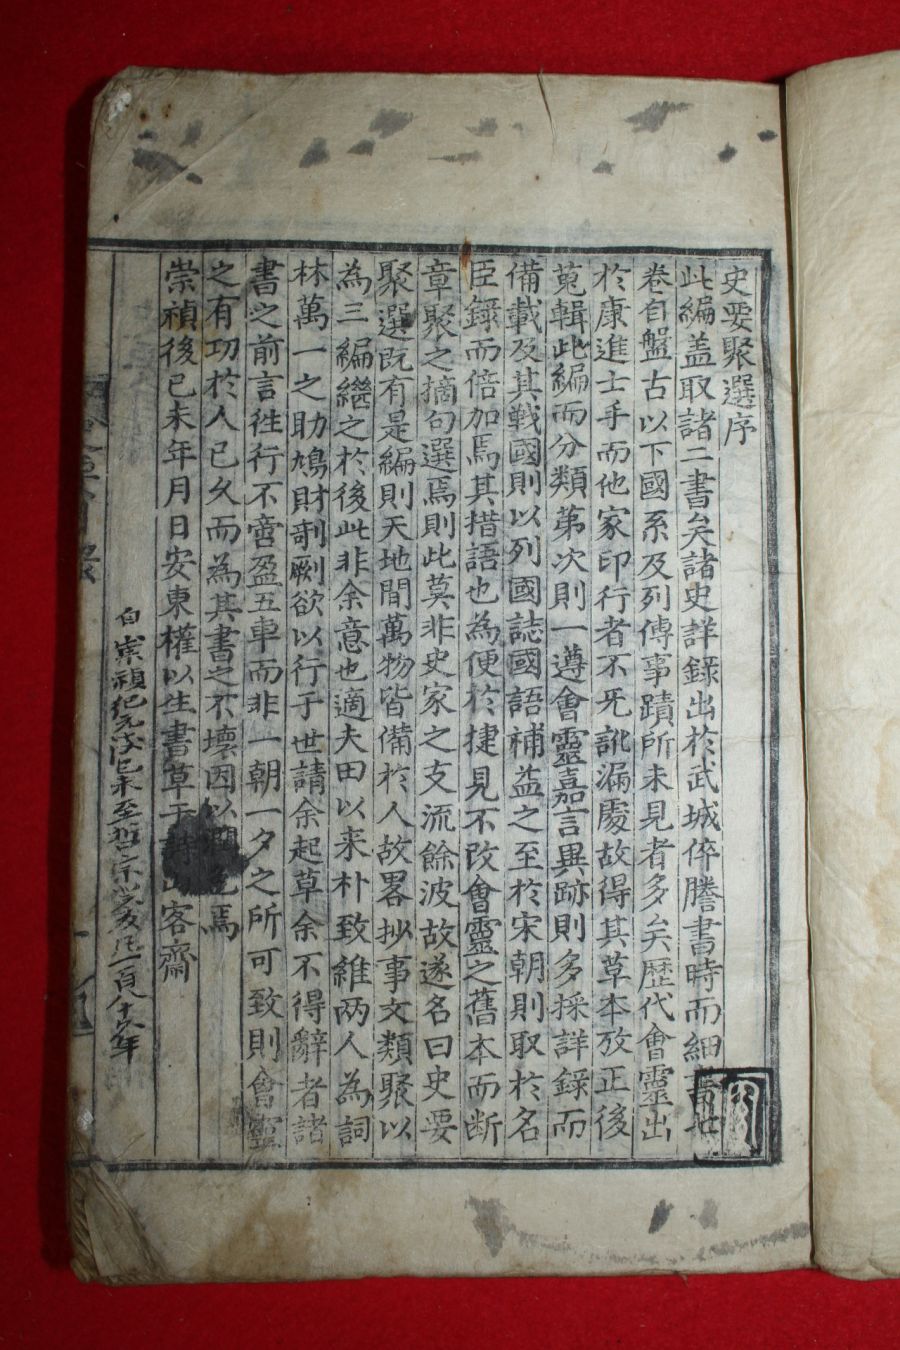 史要聚選序
此編盖取諸二書矣諸史詳錄出於武城倅謄書時而細書七
卷自盤古以下國系及列傳事蹟所未見者多矣歷代會靈出
於康進士手而他家印行者不旡訛漏處故得其草本攷正後
蒐輯此編而分類第次則一遵會靈嘉言異跡則多採詳錄而
備載及其戰國則以列國誌國語補益之至於宋朝則取於名
臣錄而倍加焉其措語也為便於捷見不改會靈之舊本而断
章聚之摘句選焉則此莫非史家之支流餘波故遂名曰史要
聚選既有是編則天地間萬物皆備於人故畧抄事文類聚以
為三編繼之於後此非余意也適夫田以来朴致維两人為詞
林萬一之助鳩財剞劂欲以行于世請余起草余不得辭者諸
書之前言徃行不啻盈五車而非一朝一夕之所可致則會靈
之有功於人已久而為其書之不壞因以焉
崇禎後己未年月日安東權以生書草于山客齋
自崇禎紀元後己未至哲宗一百八十年